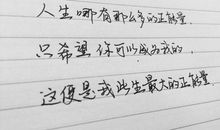 人生哪有那么多的正能量
只希望你可以成为我的,
这便是我此生最大的正能量.